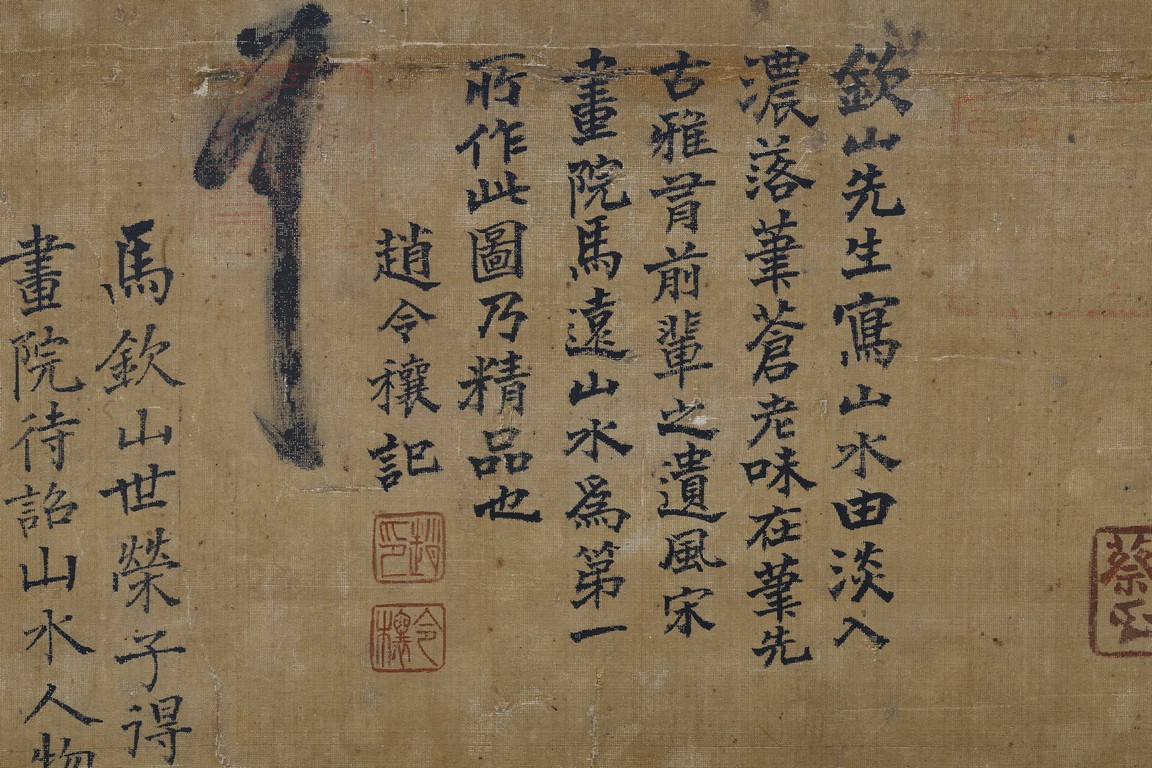 欽山先生寫山水由淡入
濃落筆蒼老味在筆先
古雅有前輩之遺風宋
畫院馬遠山水為第一
所作此圖乃精品也
趙令穰記
趙印
令穰
馬欽山世榮子得
畫院待詔山水人物